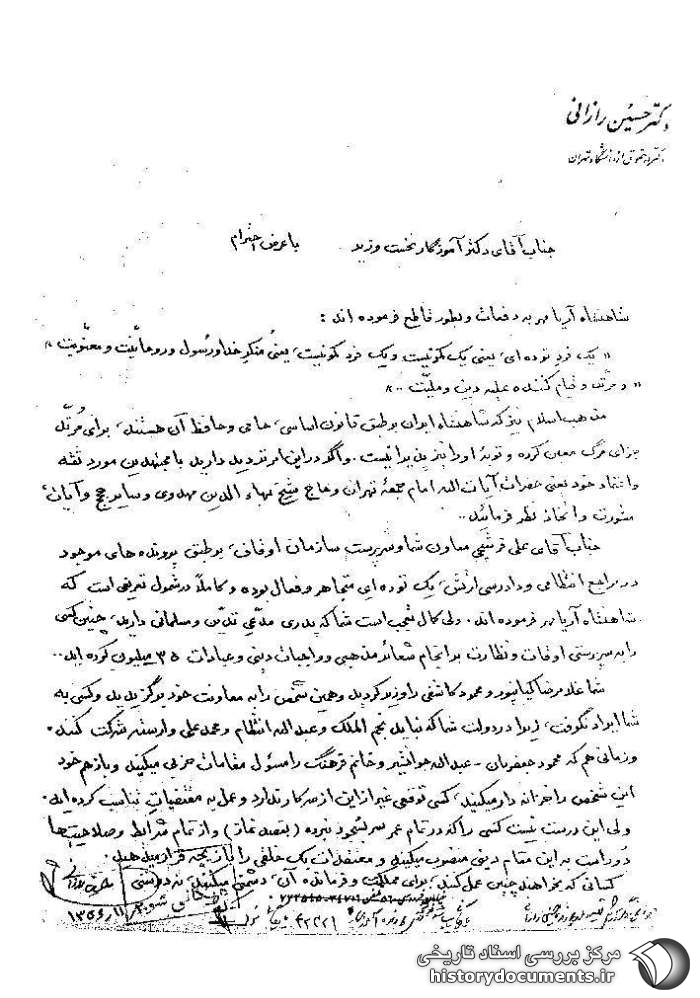 دکتر حسین رازانی
دکتر در حقوق از دانشگاه تهران
جناب آقای دکتر آموزگار نخست وزیر با عرض احترام
شاهنشاه آریامهر به دفعات و بطور قاطع فرموده اند :
« یک فرد توده ای، یعنی یک کمونیست و یک فرد کمونیست، یعنی منکر خدا و رسول و روحانیّت و معنویت »
« و مرتّد و قیام کننده علیه دین و ملیّت .. »
مذهب اسلام نیز که شاهنشاه ایران بر طبق قانون اساسی، حامی و حافظ آن هستند، برای مُرتّد
جزای مرگ معین کرده و توبهٔ او را نیز پذیرا نیست. و اگر در این امر تردید دارید با مجتهدین مورد ثقه
و اعتماد خود یعنی حضرات آیات اله امام جمعهٔ تهران و حاج شیخ بهاء الدین مهدوی و سایر حجج و آیات،
مشورت و اتخاذ نظر فرمائید ..
جناب آقای علی فرشچی معاون شما و سرپرست سازمان اوقاف، بر طبق پرونده های موجود
در مراجع انتظامی و دادرسی ارتش، یک توده ای متجاهر و فعال بوده و کاملاً در شمول تعریفی است که
شاهنشاه آریامهر فرموده اند. ولی کمال تعجب است شما که پدری مدّعیِ تدیّن و مسلمانی دارید، چنین کسی
را به سرپرستی اوقاف و نظارت بر انجام شعائر مذهبی و واجبات دینی و عبادات ۳۵ میلیون کرده اید ..
شما غلامرضا کیانپور و محمود کاشفی را وزیر کردید و همین شخص را به معاونت خود برگزیدید و کسی به
شما ایراد نگرفت، زیرا در دولت شما که نباید نجم الملک و عبداله انتظام و محمد علی وارسته شرکت کنند.
و زمانی هم که محمود جعفریان - عبداله جوانشیر و خانم فرهنگ را مسئول مقامات حزبی میکنید و باز هم خود
این شخص را خزانه دار میکنید، کسی توقعی غیر از این از هر کار ندارد و عمل به مقتضیاتِ تناسب کرده اید.
ولی این درست نیست کسی را که در تمام عمر سر بسجود نبرده (بقصد نماز) و از تمام شرائط و صلاحیت ها
دور است به این مقام دینی منصوب میکنید و معتقدات یک خلقی را بازیچه قرار میدهید.
کسانی که بخواهند چنین عمل کنند، برای مملکت و فرمانده آن، دشمنی میکنند، نه دوستی
بایگانی شود
۱۳۵۶/۱۱/
۴۲۲۲۱
مرکز بررسی اسناد تاریخی
historydocuments.ir